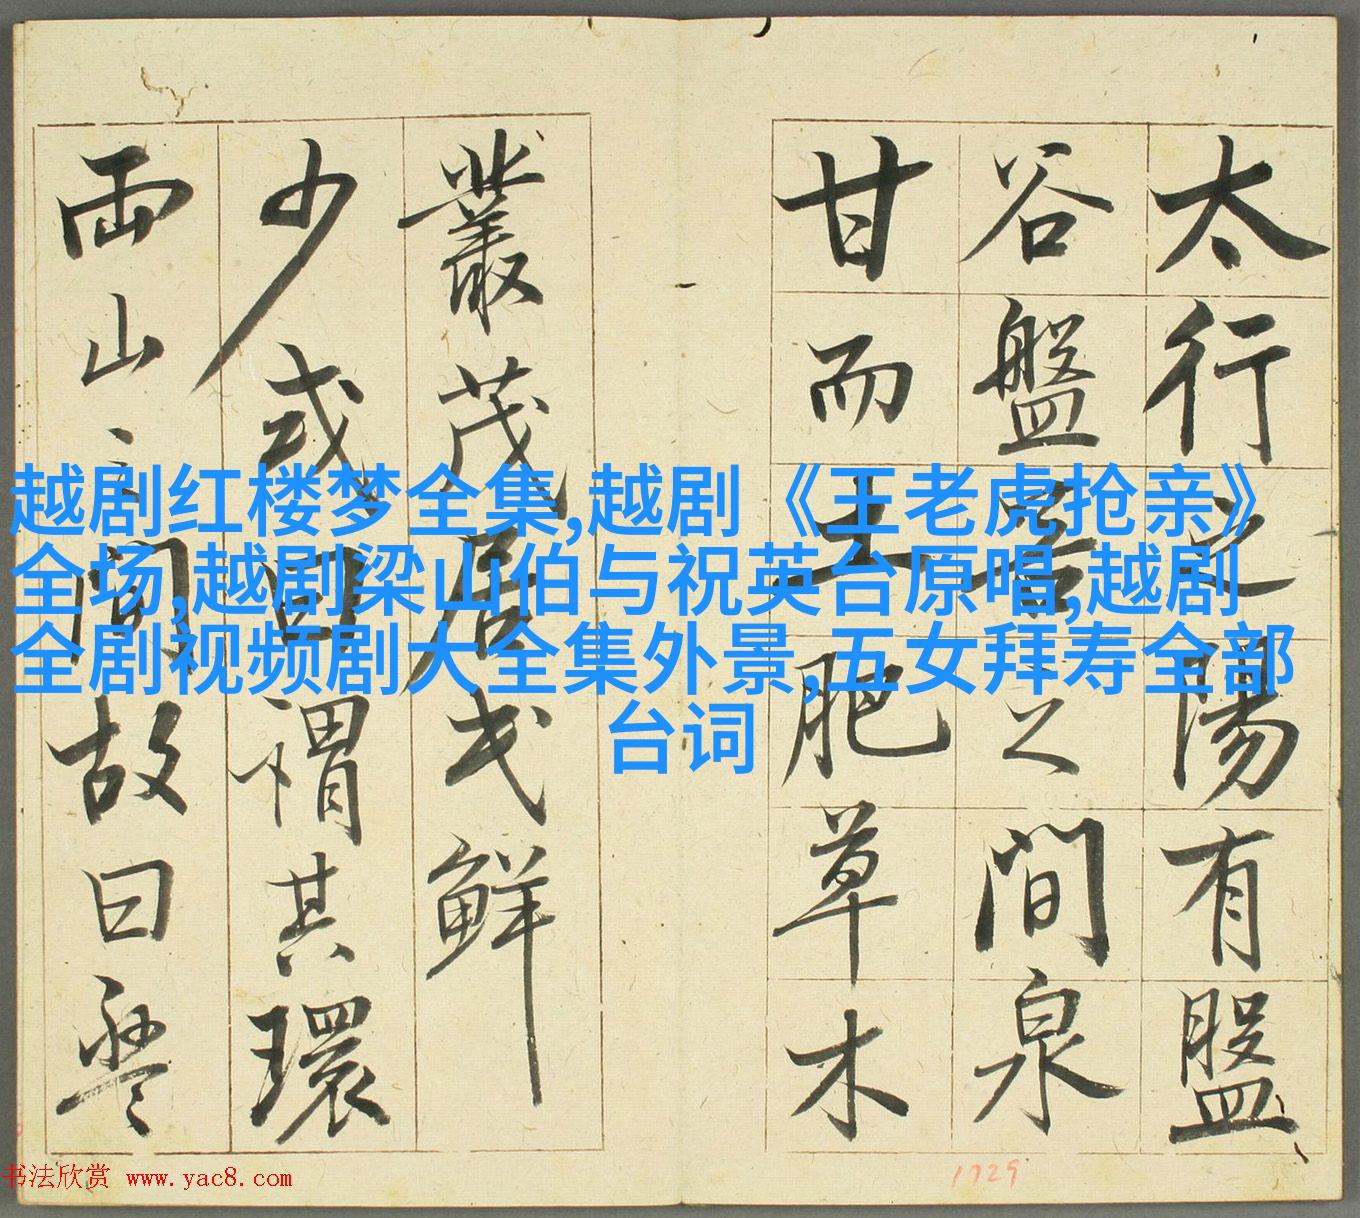 太行之陽有盤
谷盤谷之間泉
甘而土肥草木
叢茂居民鮮
少或曰謂其環
兩山之間故曰盤
越剧红楼梦全集,越剧《王老虎抢亲》
全场,越剧梁山伯与祝英台原唱,越剧
全剧视频剧大全集外景,五女拜寿全部
台词
书法欣赏 www.yac8.com
1729